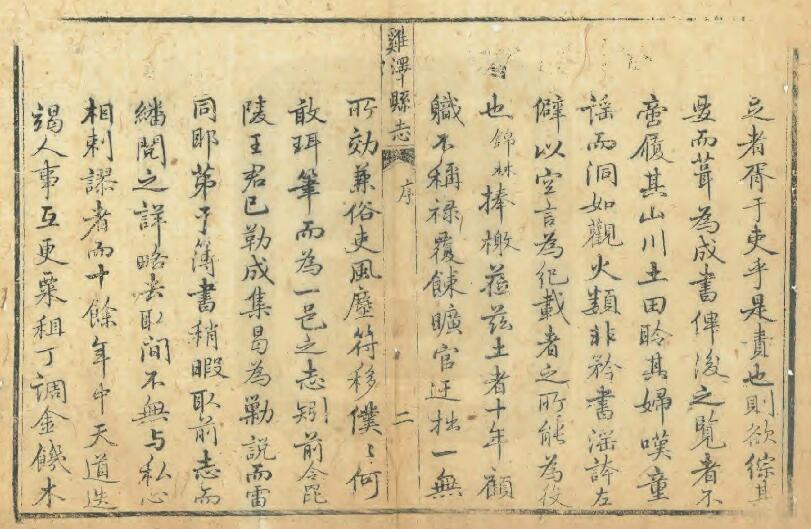 之者胥于吏乎是責也則欲綜其
要而葺為成書俾後之覽者不
啻履其山川土田聆其婦嘆童
謡而洞如觀火類非矜書淫誇左
僻以空言為紀載者之所能為役
也錦林捧檄蒞茲土者十年顧
職不稱祿覆餗曠官迂拙一無
雞澤縣志
序
二
所効兼俗吏風塵符移僕〻何
敢珥筆而為一邑之志矧前令毘
陵王君已勒成集曷為勦說而雷
同耶第于簿書稍暇取前志而
繙閱之詳略去取間不無与私心
相刺謬者而十餘年中天道迭
竭人事互更粟租丁調金饑木